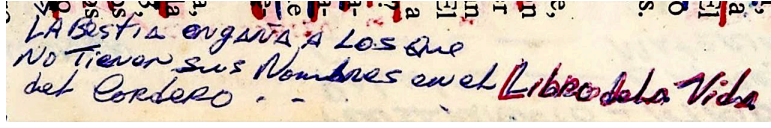 LA BestiA engAñA A Los que
No Tienen sus Nombres en el Libro de La Vida
del CorderO . .